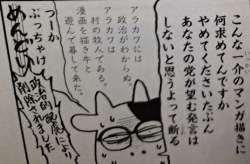 こんな一介のマンガ描きに
何求めてんですか
やめてくださいたぶん
あなたの党が望む発言は
しないと思うよって断る
アラカワには
政治がわからぬ
アラカワは
村の牧人である。
漫画を描き牛と
遊んで暮して来た。
つーか
ぶっちゃけ
めんどい
政治的配慮により
削除されました